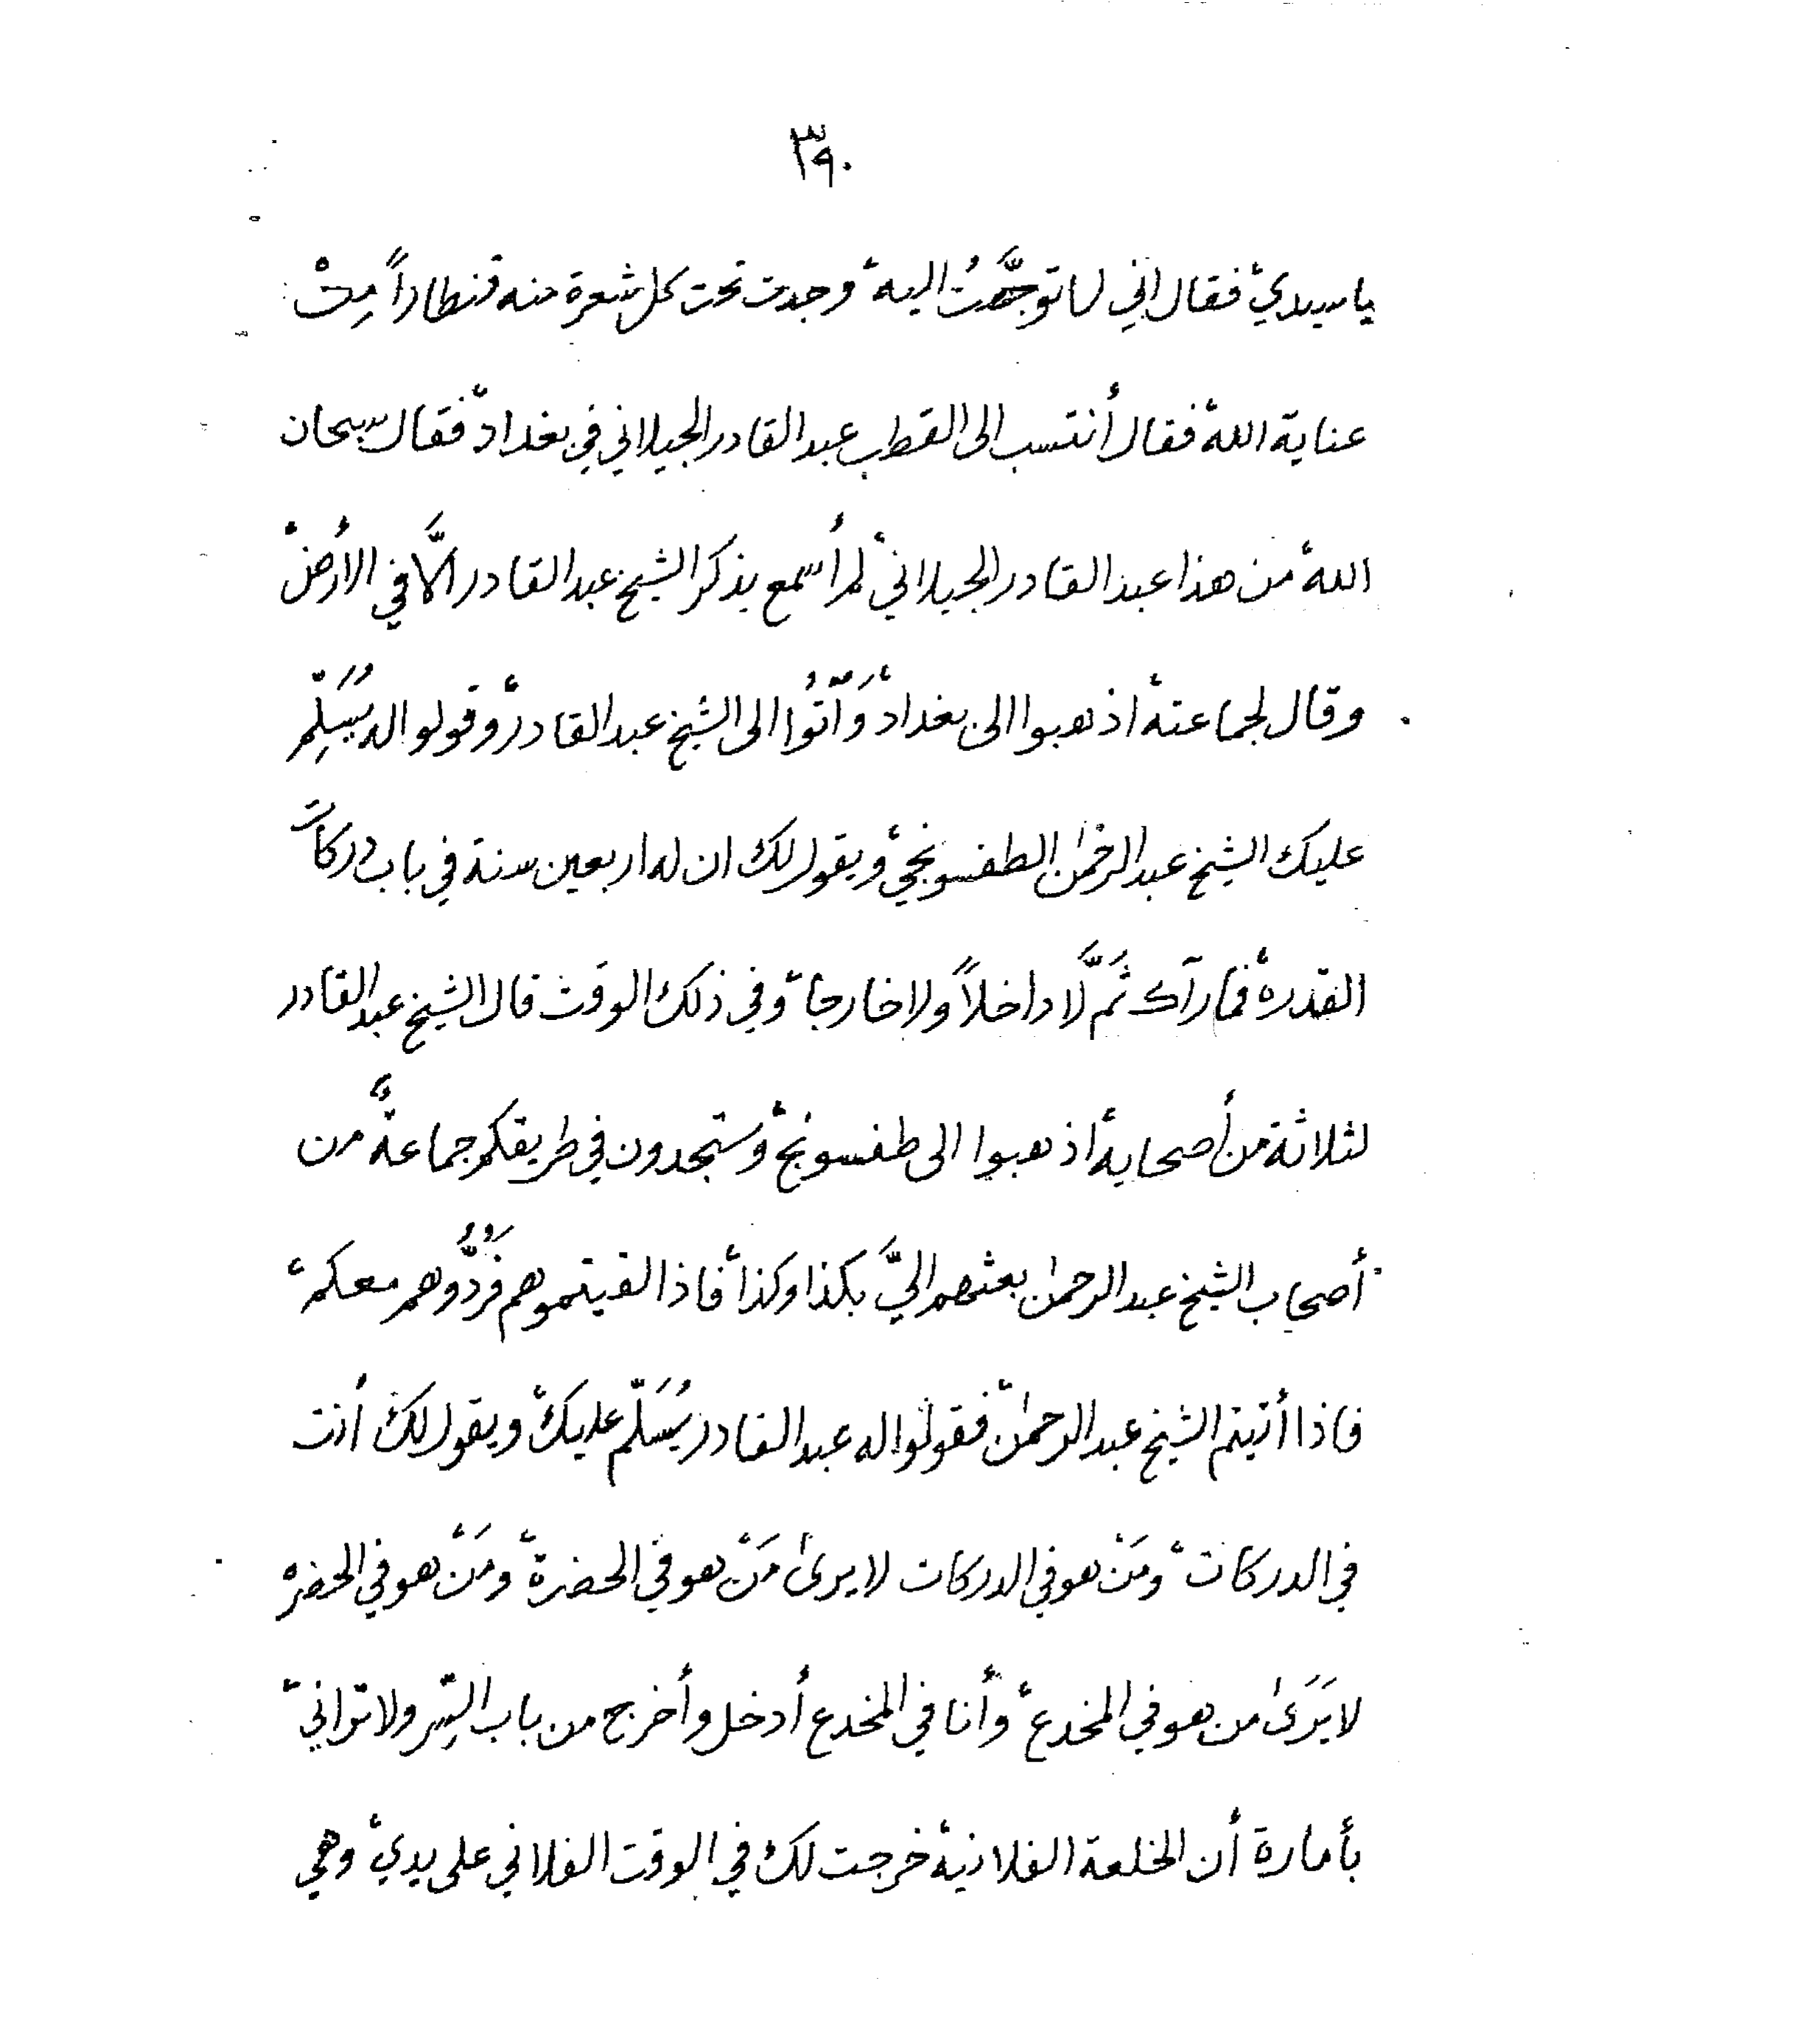 ٣٩٠
يا سيدي، فقال اني لما توجَّهتُ اليه، وجدت تحت كل شعرة منه قنطاراً مِنْ
عناية الله، فقال أنتسب الى القطب عبد القادر الجيلاني في بغداد، فقال سبحان
الله، من هذا عبد القادر الجيلاني، لم أسمع بذكر الشيخ عبد القادر الَّا في الأرض،
وقال لجماعته، اذهبوا الى بغداد، وَأْتُوا الى الشيخ عبد القادر، وقولوا له يُسَلِّم
عليك الشيخ عبد الرحمٰن الطفسونجي، ويقول لك ان له اربعين سنة في باب دركات
القدرة، فما رآك ثَمَّ لَا داخلاً ولا خارجا، وفي ذلك الوقت قال الشيخ عبد القادر
لثلاثة من أصحابه، اذهبوا الى طفسونج، وستجدون في طريقكم جماعةً من
أصحاب الشيخ عبد الرحمٰن بعثهم اليَّ بكذا وكذا، فاذا لقيتموهم فَرُدُّوهم معكم،
فاذا أتيتم الشيخ عبد الرحمٰن، فقولوا له عبد القادر يُسَلّم عليك، ويقول لك أنت
في الدركات، ومَنْ هو في الدركات لا يرىٰ مَنْ هو في الحضرة، ومَنْ هو في الحضرة
لا يَرَىٰ من هو في المخدع، وأنا في المخدع أدخل وأخرج من باب السِّر ولا تراني،
بأمارة أن الخلعة الفلانية، خرجت لك في الوقت الفلاني على يدي، وهي